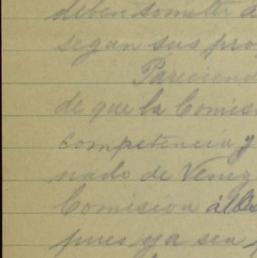 deben someter a
segan sus pro
Pareciend
de que la Comis
competencia y
nado de Venez
Comisión á
pues ya sea